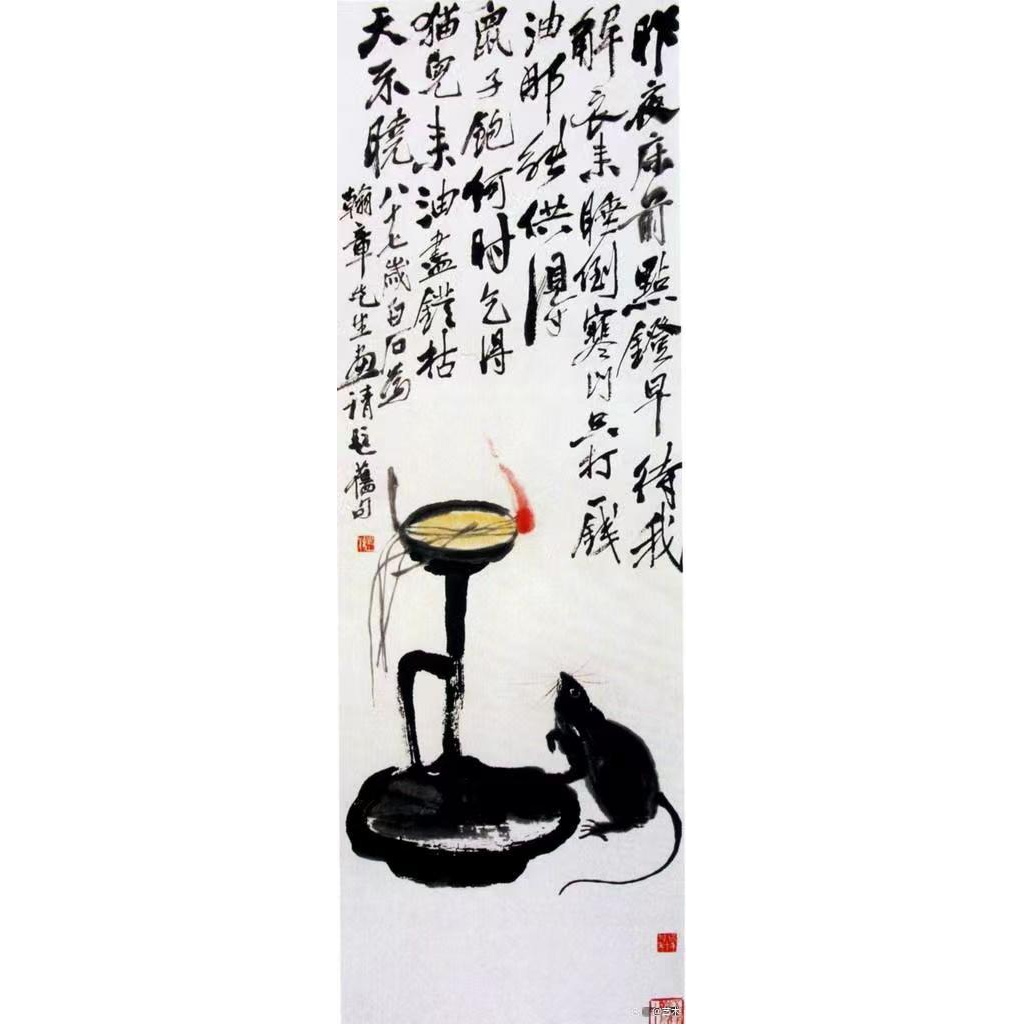 昨夜床前點鐙早待我
解衣来睡倒寒门只打一錢
油那能供得
鼠子飽何时乞得
猫兒来油盡鐙枯
天不曉八十七歲白石為
翰章先生画请題舊句
@艺术